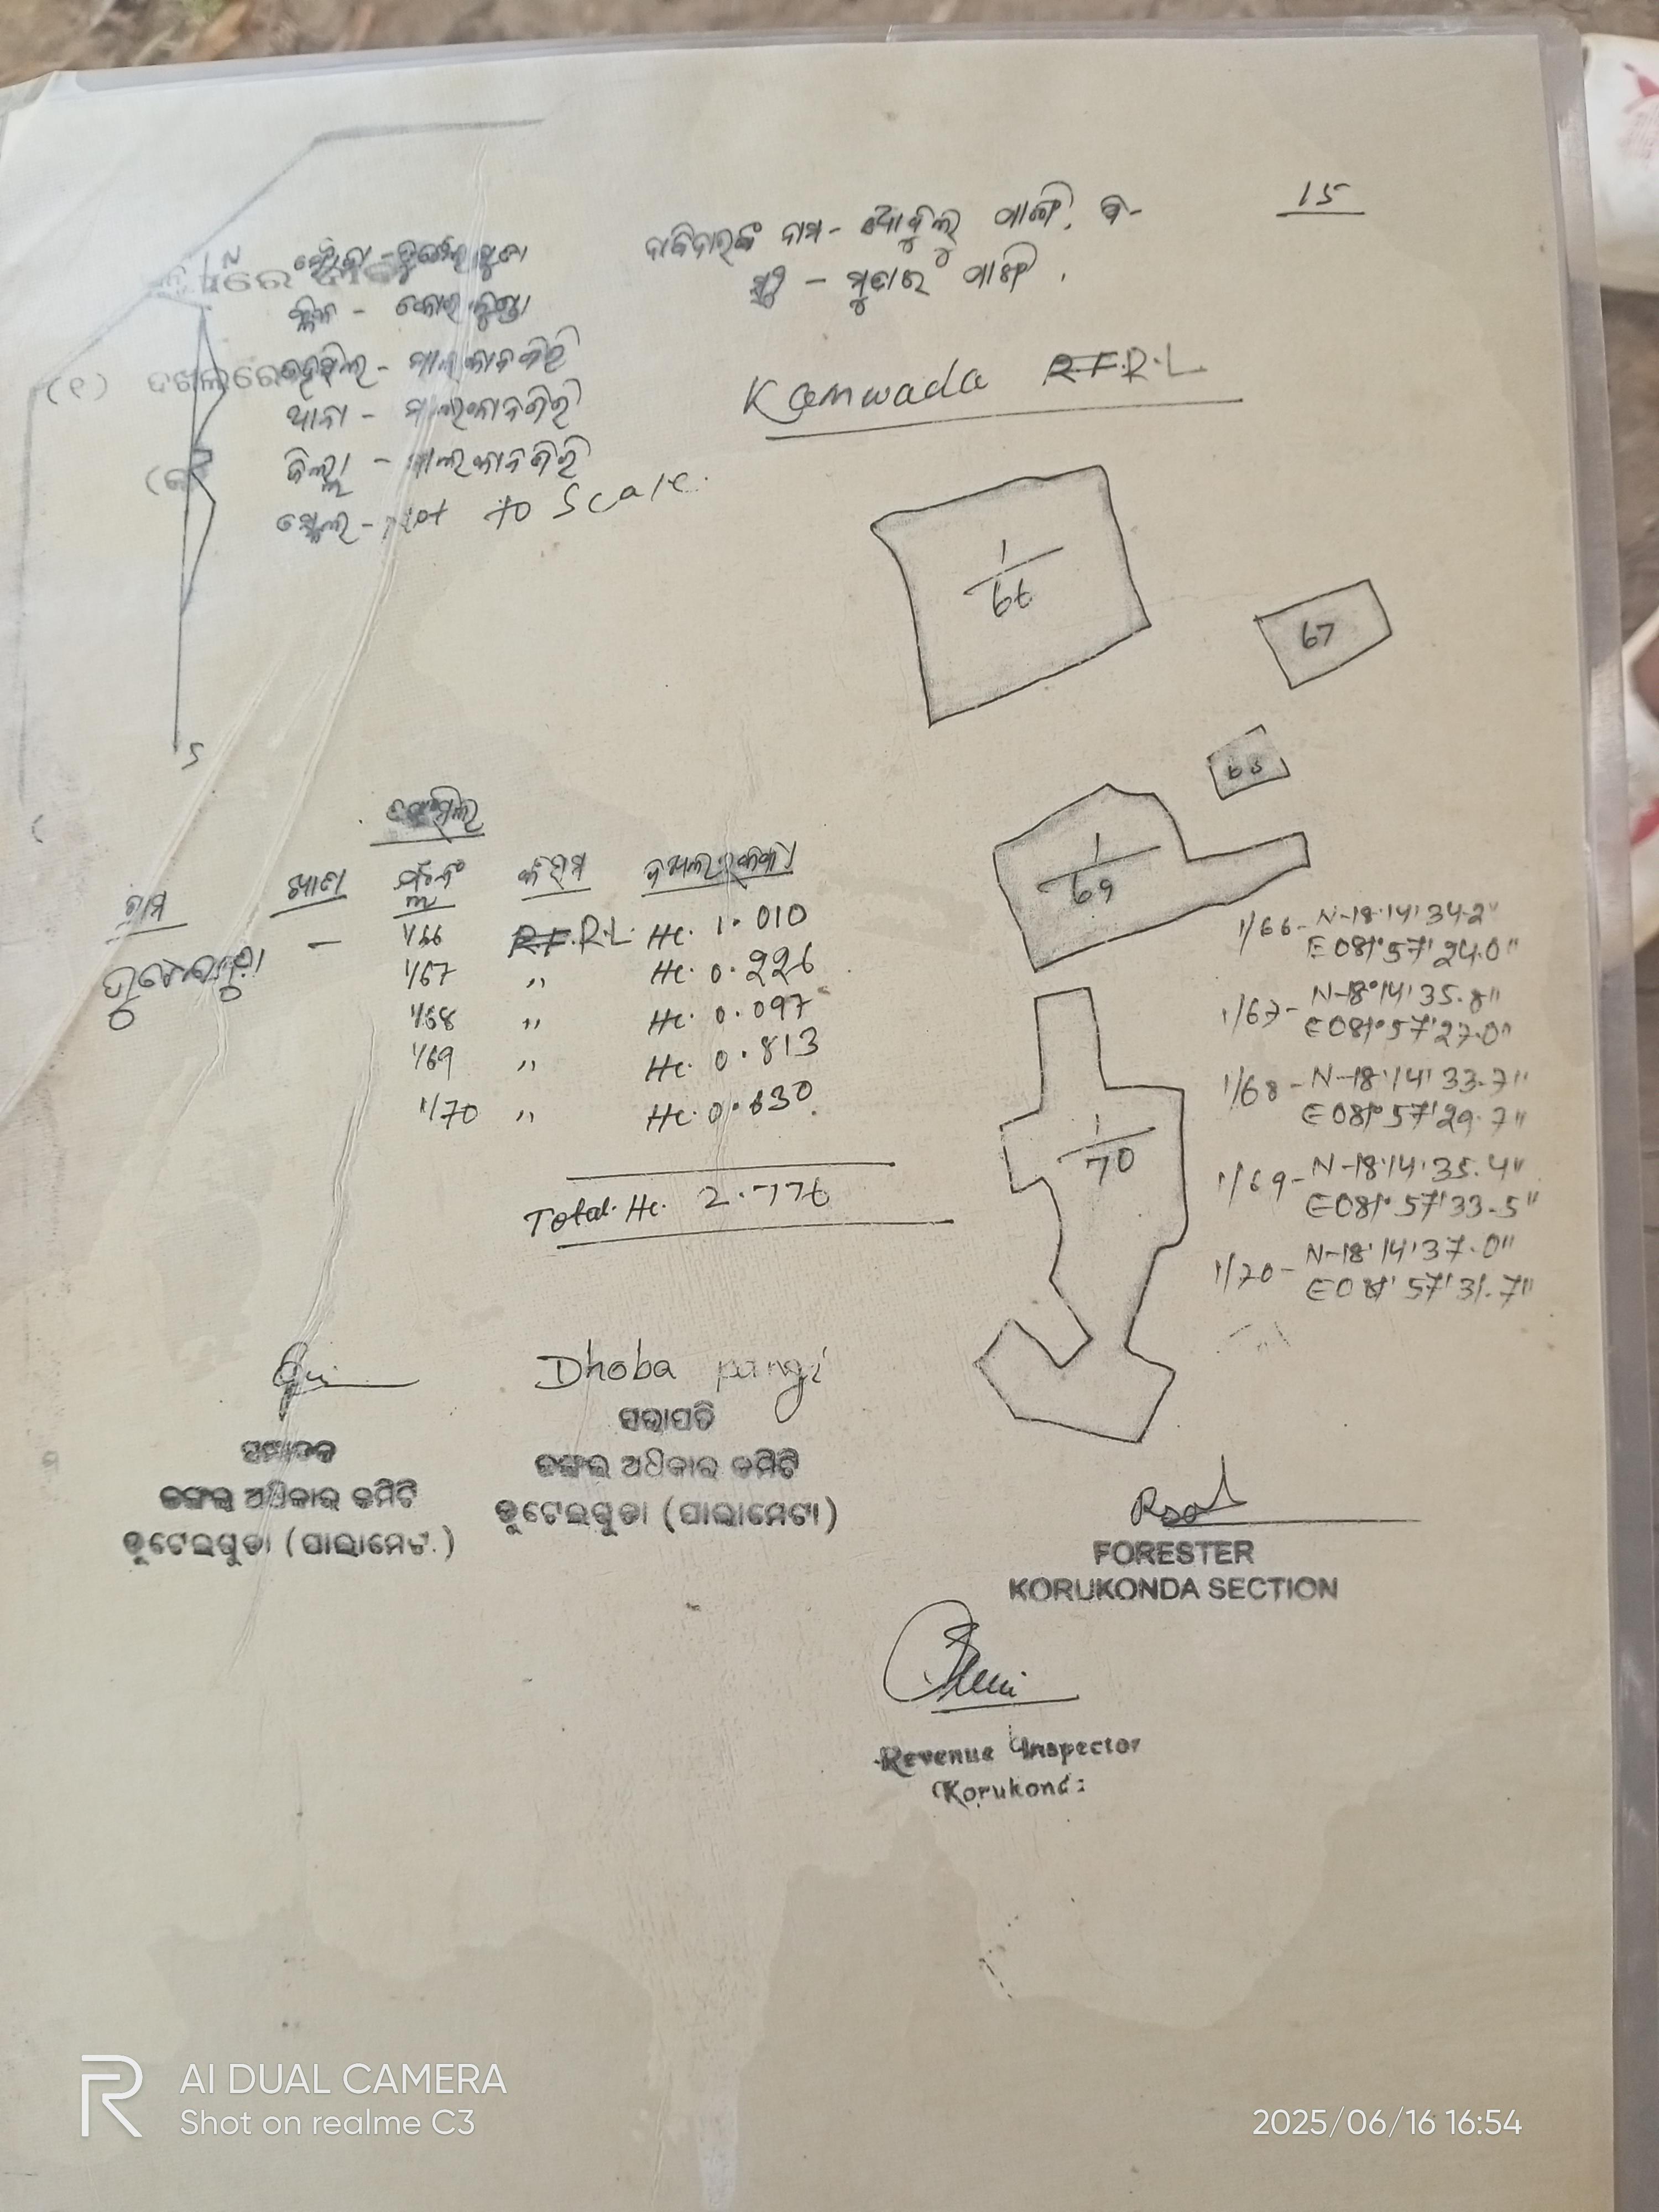 15
ଦାବିଦାରଙ୍କ ନାମ - ପାଙ୍ଗି
ମୁଦାର ପାଙ୍ଗି
N
ମୌଜା -
ବ୍ଲକ - କୋରୁକୁଣ୍ଡା
(୧) ଦଖଲରେ
ତହସିଲ - ମାଲକାନଗିରି
ଥାନା - ମାଲକାନଗିରି
ଜିଲ୍ଲା - ମାଲକାନଗିରି
ସ୍କେଲ - Not to Scale.
S
Kamwada R.F. R.L
1/66
67
68
1/69
1/70
ତଫସିଲ
ଗ୍ରାମ ଖାତା ପ୍ଲଟ ନଂ କିସମ ଦଖଲ ରକବା
- 1/66 R.F. R.L. Hc. 1.010
1/67 ,, Hc. 0.226
1/68 ,, Hc. 0.097
1/69 ,, Hc. 0.813
1/70 ,, Hc. 0.630
Total. Hc. 2.776
1/66 - N-18°14'34.2"
E 081°57'24.0"
1/67 - N-18°14'35.8"
E 081°57'27.0"
1/68 - N-18°14'33.7"
E 081°57'29.7"
1/69 - N-18°14'35.4"
E 081°57'33.5"
1/70 - N-18°14'37.0"
E 081°57'31.7"
ସମ୍ପାଦକ
ଜଙ୍ଗଲ ଅଧିକାର କମିଟି
ଡୁଟେଇଗୁଡା (ପାଲାମେଟା)
Dhoba pangi
ସଭାପତି
ଜଙ୍ଗଲ ଅଧିକାର କମିଟି
ଡୁଟେଇଗୁଡା (ପାଲାମେଟା)
FORESTER
KORUKONDA SECTION
Revenue Inspector
Korukonda
AI DUAL CAMERA
Shot on realme C3
2025/06/16 16:54